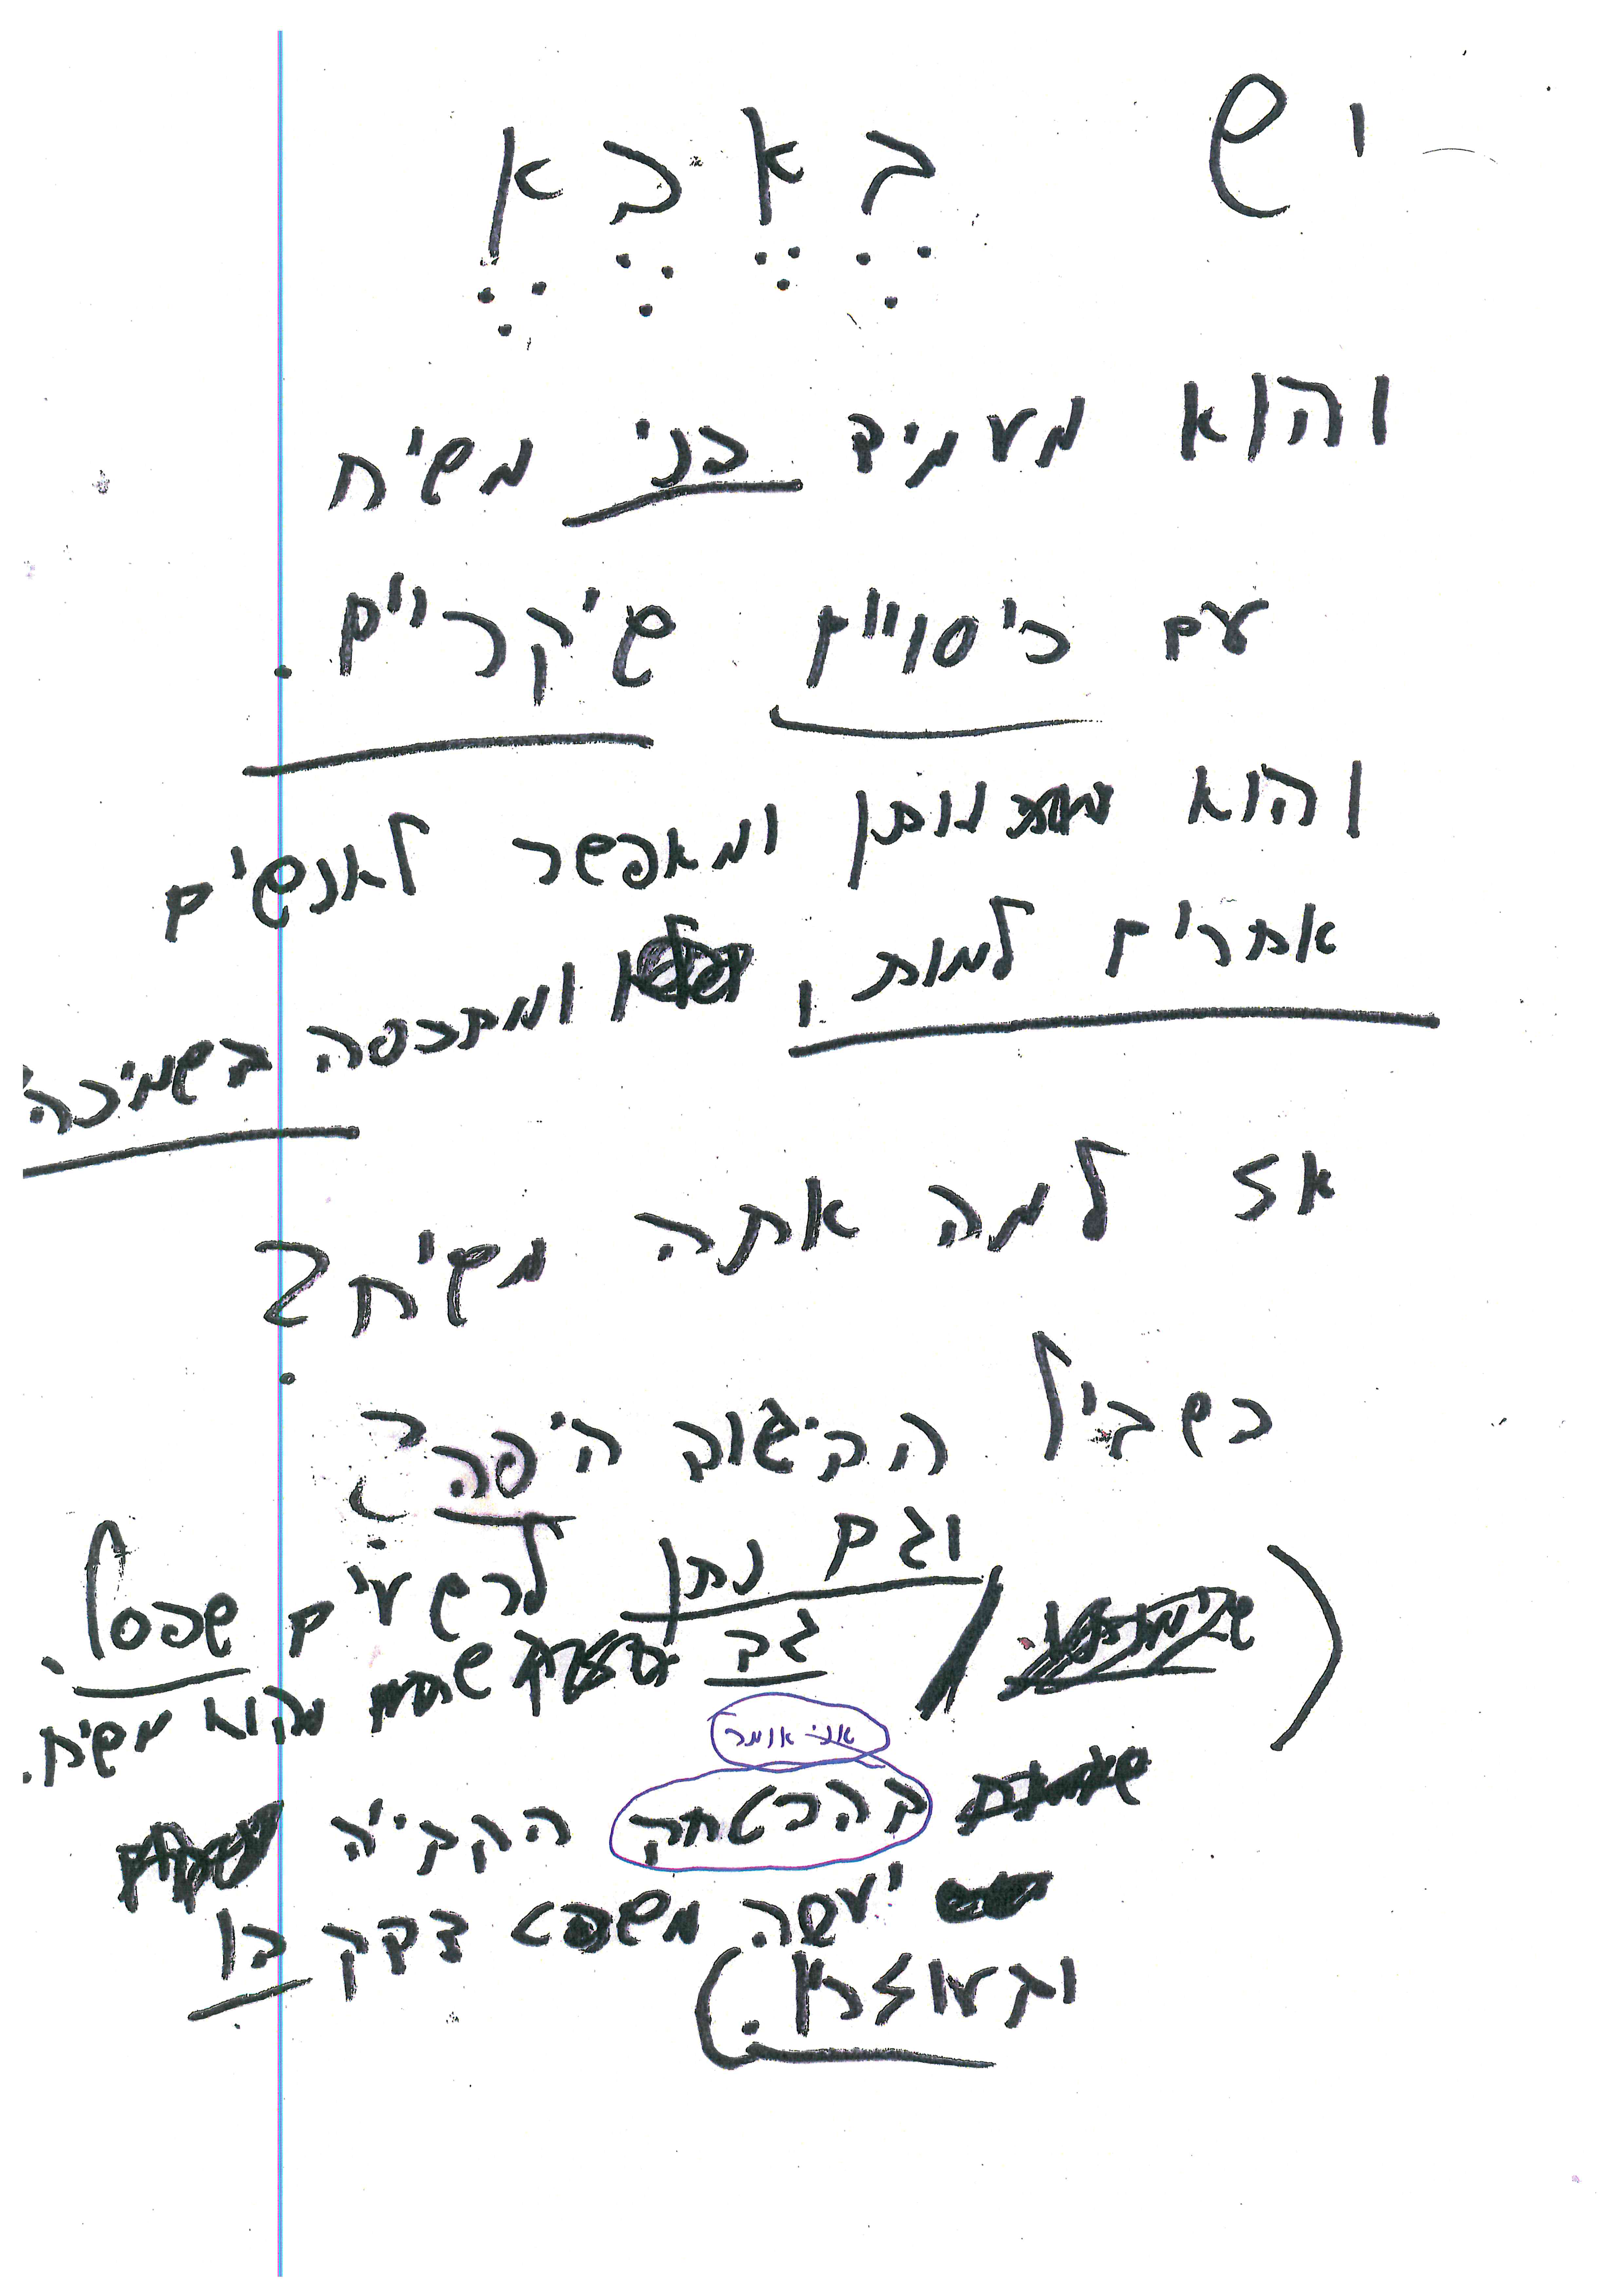 יש בֶאֶבֶאֶ
והוא מעמיד בני משיח
עם כיסויין שיקריים.
והוא נותן ומאפשר לאנשים
אחרים למות, ומתכסה בשמיכה
אז למה אתה משיח?
בשביל הכיבוב היפה?
וגם נתן לרשעים שכסל.
גב שהוא משיח.
אני אומר
בהבטחה הקב"ה
יעשה משפט צדק בו
ובעוזריו.)